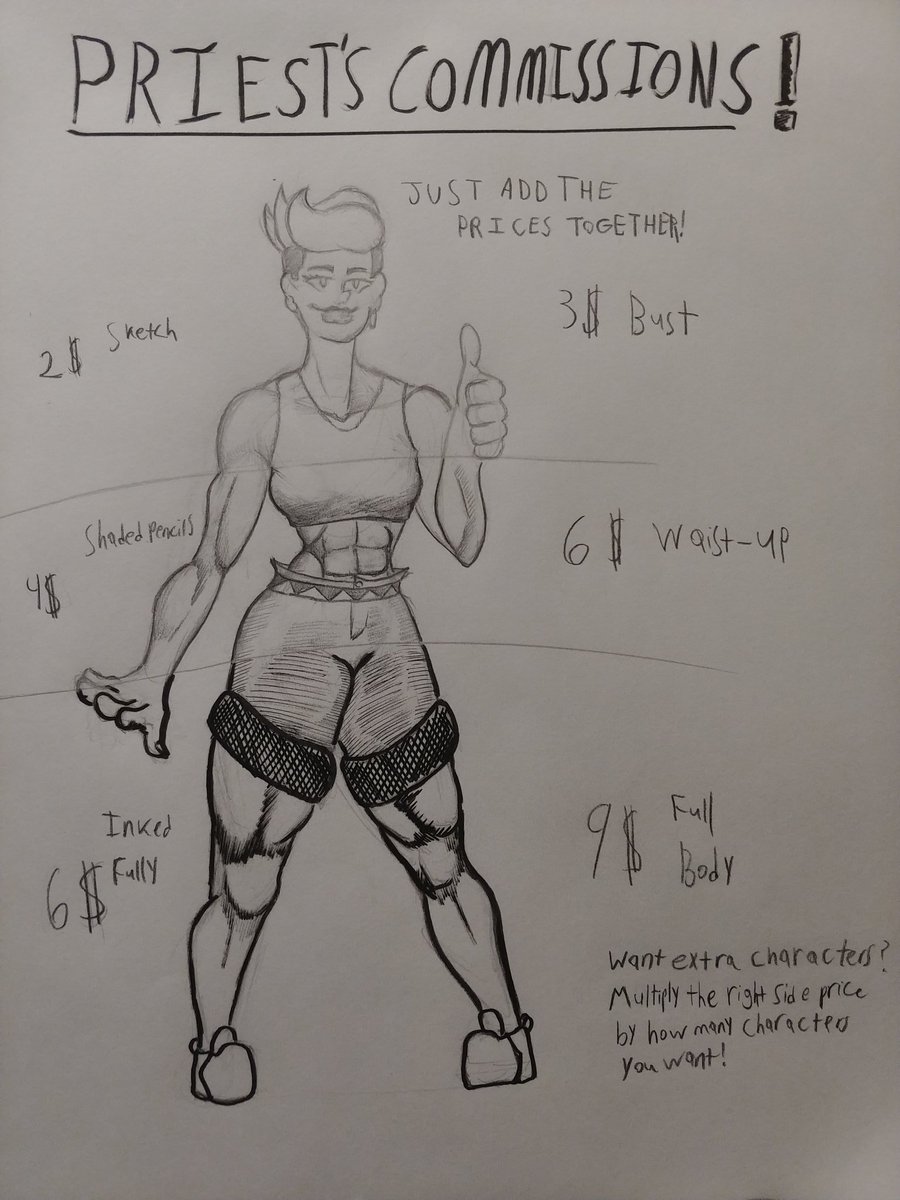 PRIEST'S COMMISSIONS!
JUST ADD THE
PRICES TOGETHER!
2$ Sketch
3$ Bust
Shaded Pencils
4$
6$ Waist-up
Inked
6$ Fully
9$ Full
Body
Want extra characters?
Multiply the right side price
by how many characters
you want!